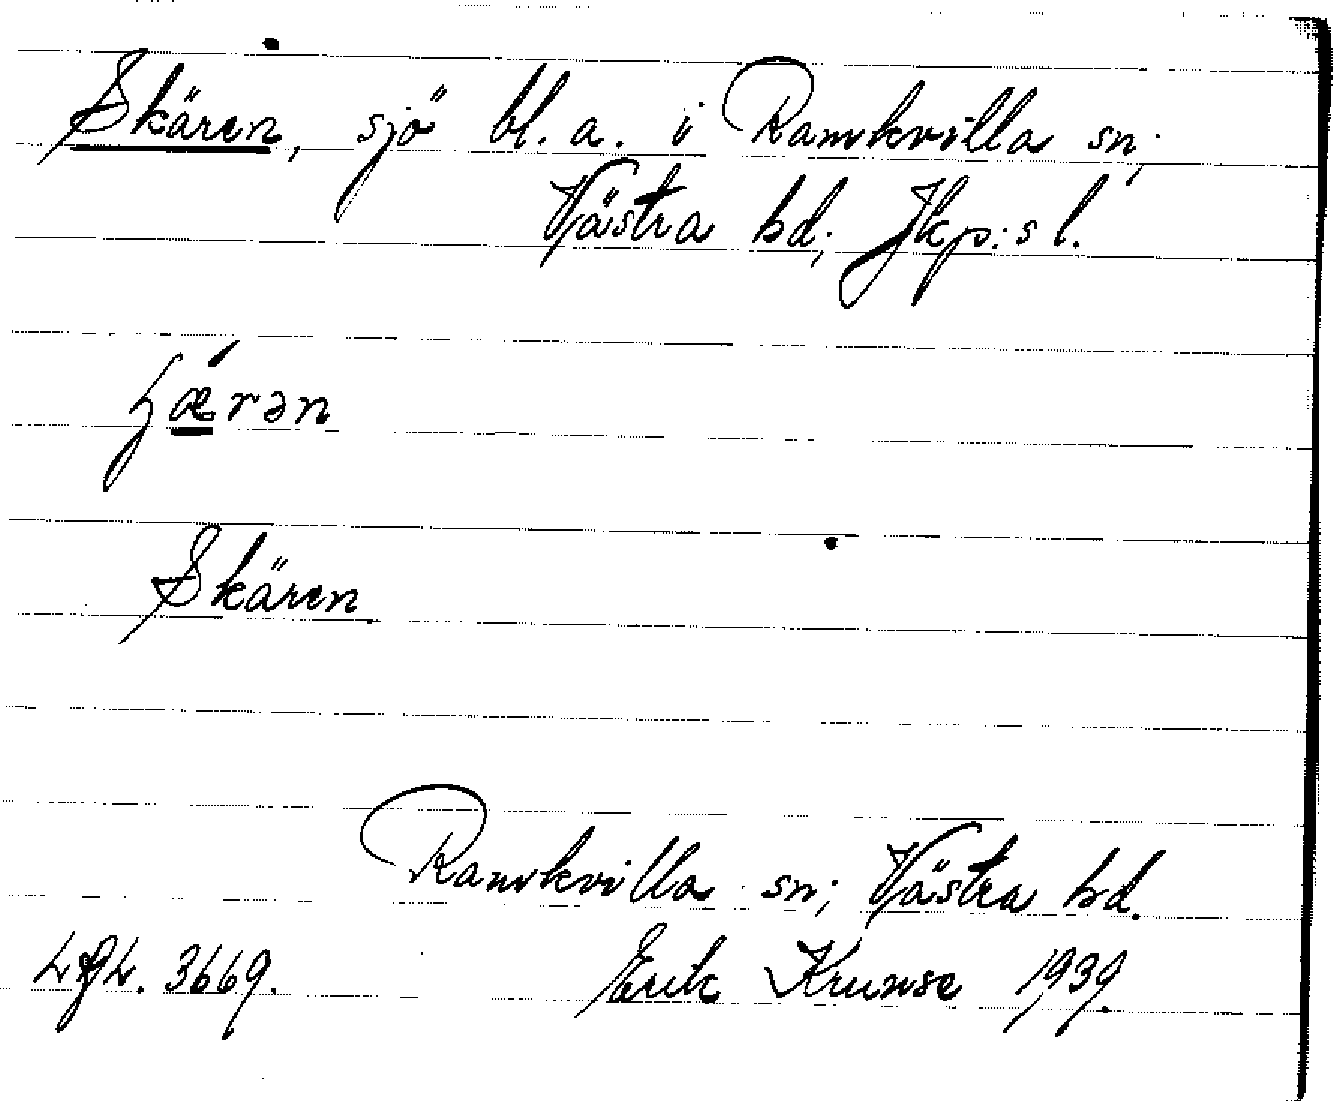 Skären, sjö bl. a. i Ramkvilla sn;
Västra hd; Jkp:s l.
ɧǽrən
Skären
Ramkvilla sn; Västra hd.
3669. Erik Krunse 1939.